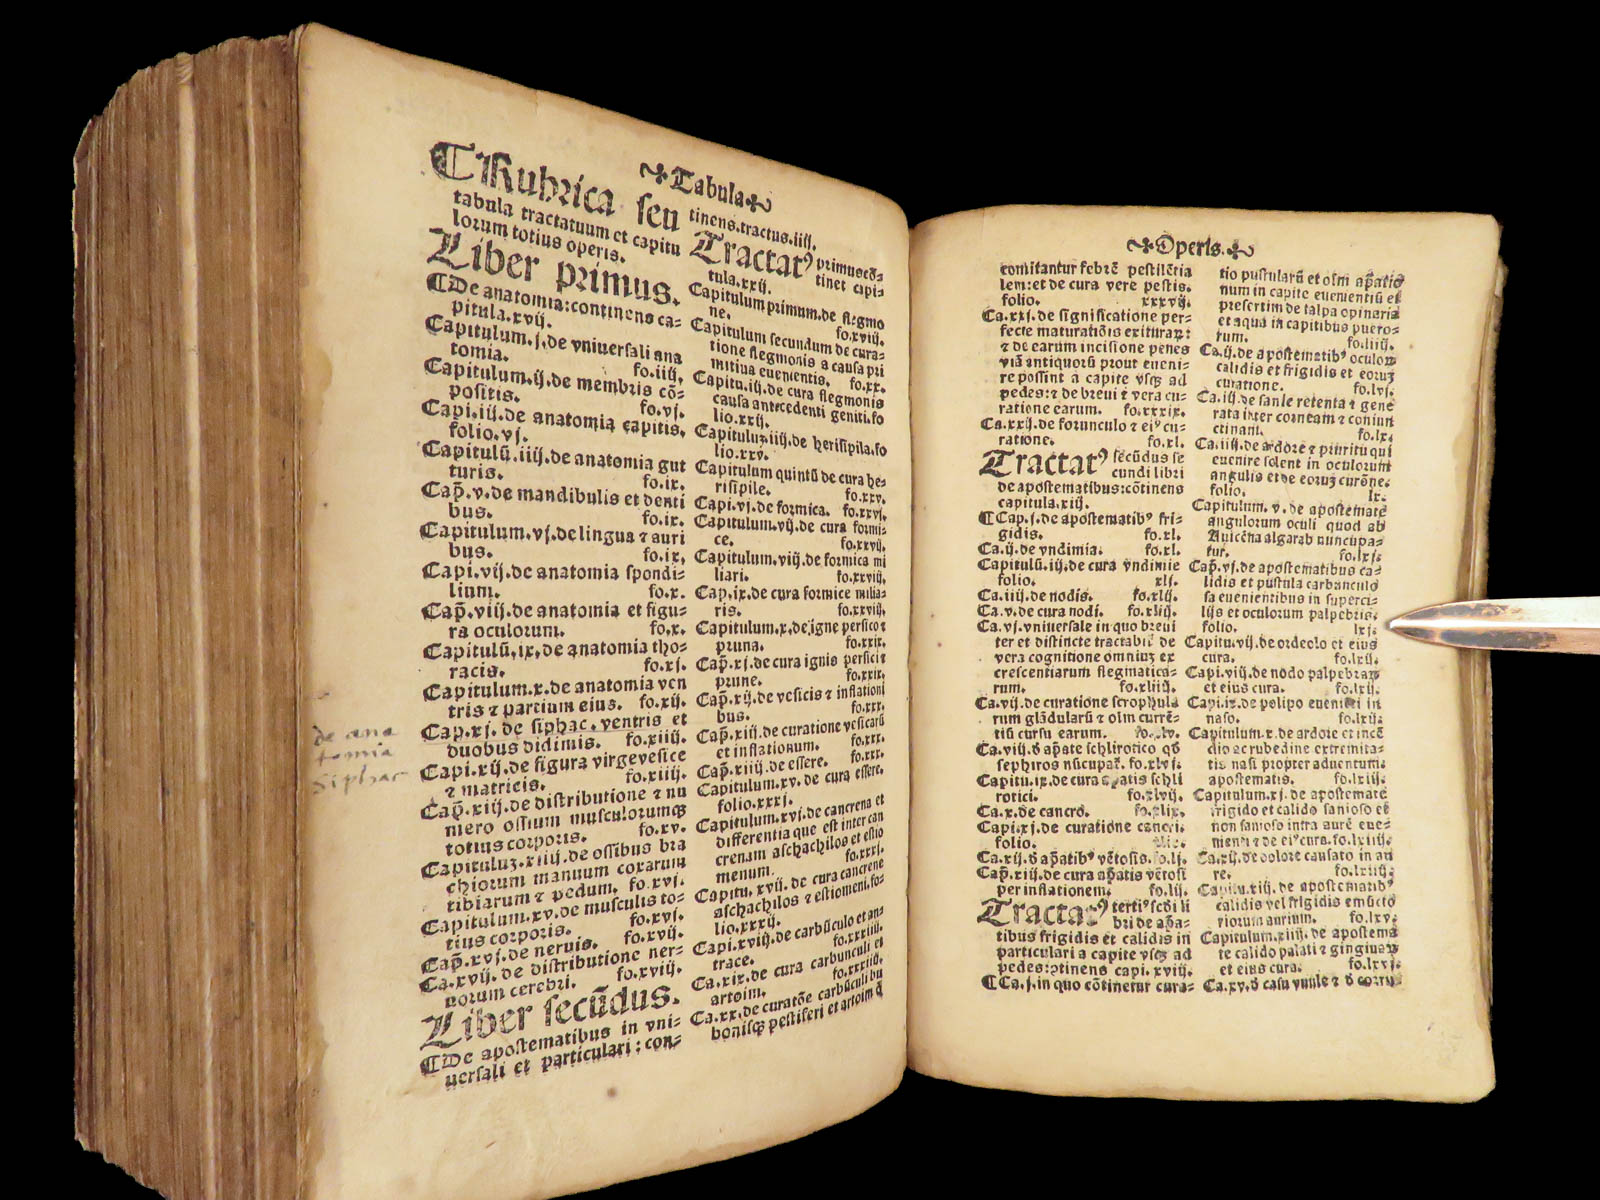 Tabula
Rubrica seu
tabula tractatuum et capitu
lorum totius operis.
Liber primus.
De anatomia: continens ca-
pitula.xvij.
Capitulum.j.de vniuersali ana
tomia. fo.iiij.
Capitulum.ij.de membris cō-
positis. fo.vj.
Capi.iij.de anatomia capitis.
folio.vj.
Capitulū.iiij.de anatomia gut
turis. fo.ix.
Cap̄.v.de mandibulis et denti
bus. fo.ix.
Capitulum.vj.de lingua ⁊ auri
bus. fo.ix.
Capi.vij.de anatomia spondi-
lium. fo.x.
Cap̄.viij.de anatomia et figu-
ra oculorum. fo.x.
Capitulū.ix.de anatomia tho-
racis. fo.xj.
Capitulum.x.de anatomia ven
tris ⁊ partium eius. fo.xij.
Cap.xj. de siphac.ventris et
duobus didimis. fo.xiij.
Capi.xij.de figura virge vesice
⁊ matricis. fo.xiiij.
Cap̄.xiij.de distributione ⁊ nu
mero ossium musculorumqꝫ
totius corporis. fo.xv.
Capituluꝫ.xiiij.de ossibus bra
chiorum manuum coxarum
tibiarum ⁊ pedum. fo.xvj.
Capitulum.xv.de musculis to-
tius corporis. fo.xvj.
Cap̄.xvj.de neruis. fo.xvij.
Ca.xvij. de distributione ner-
uorum cerebri. fo.xviij.
Liber secūdus.
De apostematibus in vni-
uersali et particulari: con-
de ana
tomia
Siphac
tinens.tractus.iiij.
Tractatꝰ primus cō-
tinet capi-
tula.xxij.
Capitulum primum.de flegmo
ne. fo.xviij.
Capitulum secundum de cura-
tione flegmonis a causa pri
mitiua euenientis. fo.xx.
Capitu.iij.de cura flegmonis
causa antecedenti geniti.fo
lio.xxij.
Capituluꝫ.iiij.de herisipila.fo
lio.xxv.
Capitulum quintū de cura he-
risipile. fo.xxv.
Capi.vj.de formica. fo.xxvj.
Capitulum.vij.de cura formi-
ce. fo.xxvij.
Capitulum.viij.de formica mi
liari. fo.xxviij.
Cap.ix.de cura formice milia-
ris. fo.xxviij.
Capitulum.x.de igne persico ⁊
pruna. fo.xxix.
Cap̄.xj.de cura ignis persici ⁊
prune. fo.xxix.
Cap̄.xij.de vesicis ⁊ inflationi
bus. fo.xxx.
Cap̄.xiij.de curatione vesicarū
et inflationum. fo.xxx.
Cap̄.xiiij.de essere. fo.xxx.
Capitulum.xv. de cura essere.
folio.xxxj.
Capitulum.xvj.de cancrena et
differentia que est inter can
crenam aschachilos et estio
menum. fo.xxxj.
Capitu.xvij. de cura cancrene
aschachilos ⁊ estiomeni.fo-
lio.xxxij.
Capi.xviij.de carbūculo et an-
trace. fo.xxxiiij.
Ca.xix.de cura carbunculi et
artoim. fo.xxxiiij.
Ca.xx.de curatōe carbūculi bu
bonisqꝫ pestiferi et artoim q̄
Operis.
comitantur febrē pestilētia
lem: et de cura vere pestis.
folio. xxxvij.
Ca.xxj.de significatione per-
fecte maturatiōis exituraꝝ:
⁊ de earum incisione penes
viā antiquorū prout eueni-
re possint a capite vsqꝫ ad
pedes: ⁊ de breui ⁊ vera cu-
ratione earum. fo.xxxix.
Ca.xxij.de forunculo ⁊ eiꝰ cu-
ratione. fo.xl.
Tractatꝰ secūdus se
cundi libri
de apostematibus: cōtinens
capitula.xiij.
Cap.j.de apostematibꝰ fri-
gidis. fo.xl.
Ca.ij.de vndimia. fo.xl.
Capitulū.iij.de cura vndimie
folio. xlj.
Ca.iiij.de nodis. fo.xlij.
Ca.v.de cura nodi. fo.xlij.
Ca.vj.vniuersale in quo breui
ter et distincte tractabit̄ de
vera cognitione omniuꝫ ex
crescentiarum flegmatica-
rum. fo.xliij.
Ca.vij.de curatione scrophula
rum glādularū ⁊ olm currē-
tiū cursu earum.
Ca.viij.d̄ ap̄ate schlirotico qd̄
sephiros nūcupat̄. fo.xlvj.
Capitu.ix.de cura ap̄atis schli
rotici. fo.xlvij.
Ca.x.de cancro. fo.xlix.
Capi.xj.de curatione cancri.
folio.
Ca.xij.d̄ ap̄atibꝰ vētosis.fo.lj.
Cap̄.xiij.de cura ap̄atis vētosi
per inflationem. fo.lij.
Tractatꝰ tertiꝰ scd̄i li
bri de ap̄a-
tibus frigidis et calidis in
particulari a capite vsqꝫ ad
pedes: ꝯtinens capi.xviij.
Ca.j.in quo cōtinetur cura-
tio pustularū et olm ap̄atio
num in capite euenientiū et
presertim de talpa opinaria
et aqua in capitibus puero-
rum. fo.liiij.
Ca.ij.de apostematibꝰ oculoꝝ
calidis et frigidis et eoruꝫ
curatione. fo.lvj.
Ca.iij.de sanie retenta ⁊ gene
rata inter corneam ⁊ coniun
ctinam. fo.lx.
Ca.iiij.de ardore ⁊ pruritu qui
euenire solent in oculorum
angulis et de eoruꝫ curōne.
folio. lx.
Capitulum. v. de apostemate
angulorum oculi quod ab
Auicēna algarab nuncupa-
tur. fo.lxj.
Cap̄.vj.de apostematibus ca-
lidis et pustula carbunculo
sa euenientibus in superci-
lijs et oculorum palpebris.
folio. lxj.
Capitu.vij.de ordeolo et eius
cura. fo.lxij.
Capi.viij.de nodo palpebraꝝ
et eius cura. fo.lxij.
Capi.ix.de polipo eueniēti in
naso. fo.lxij.
Capitulum.x.de ardore et incē
dio ac rubedine extremita-
tis nasi propter aduentum.
apostematis. fo.lxiij.
Capitulum.xj.de apostemate
frigido et calido sanioso et
non sanioso intra aurē eue-
nienti ⁊ de eiꝰ cura.fo.lxiij.
Ca.xij.de dolore causato in au
re. fo.lxiiij.
Capitu.xiij. de apostematibꝰ
calidis vel frigidis emūcto
riorum aurium. fo.lxv.
Capitulum.xiiij.de apostema
te calido palati ⁊ gingiuaꝝ
et eius cura. fo.lxvj.
Ca.xv.d̄ casu vuule ⁊ d̄